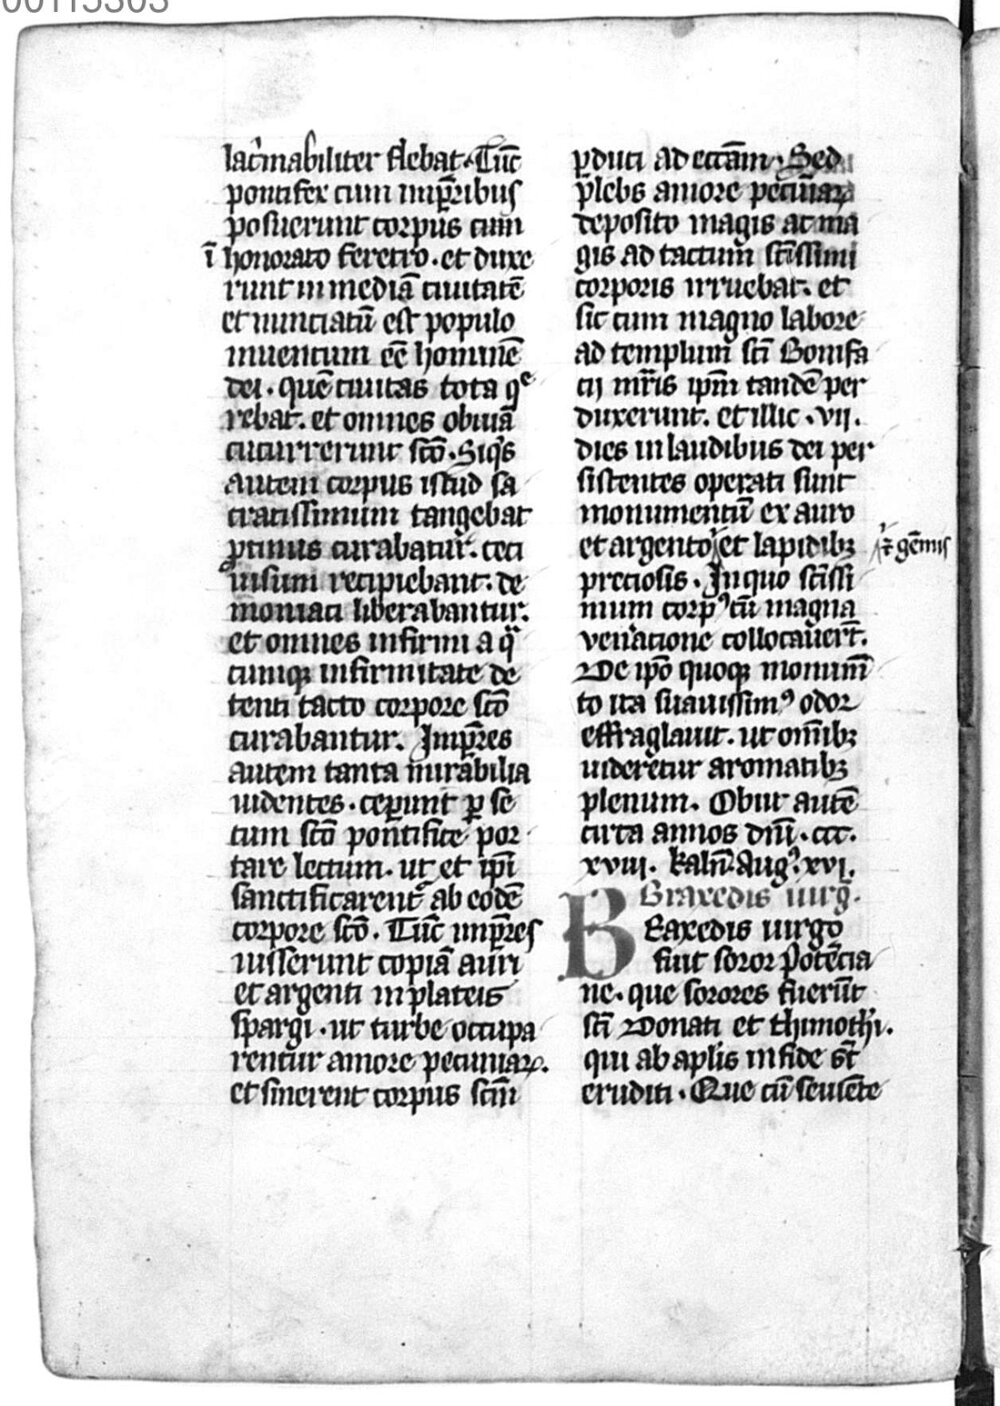 lac͛mabiliter flebat. Tūc
pontifex cum imꝑribus
posuerunt corpus cum
ī honorato feretro. et duxe
runt in mediā ciuitatē
et nunciatū est populo
inuentum eē hominē
dei. quē ciuitas tota qͤ
rebat. et omnes obuiā
cucurrerunt scō. Siqͥs
autem corpus istud sa
cratissimum tangebat
ꝓtinus curabatur. ceci
uisum recipiebant. de
moniaci liberabantur.
et omnes infirmi a qͣ
cumqꝫ infirmitate de
tenti tacto corpore scō
curabantur. Imꝑres
autem tanta mirabilia
uidentes. ceperunt ꝑ se
cum scō pontifice por
tare lectum. ut et ipī
sanctificarent᷑ ab eodē
corpore scō. Tūc imꝑres
iusserunt copiā auri
et argenti in plateis
spargi. ut turbe occupa
rentur amore pecuniaꝝ.
et sinerent corpus scm̄
ꝑduci ad ecclam̄. Sed
plebs amore pecuniaꝝ
deposito magis ac ma
gis ad tactum scissimi
corporis irruebat. et
sic cum magno labore
ad templum sci Bonifa
cij mr̄is ipm̄ tandē per
duxerunt. et illic .vii.
dies in laudibus dei per
sistentes operati sunt
monumentū ex auro
et argento et lapidibꝫ ⁊ gēmis
preciosis. In quo scissi
mum corpꝰ cū magna
ven͛atione collocauer̄t.
De ipō quoqꝫ monum̄
to ita suauissimꝰ odor
effraglauit. ut om̄ibꝫ
uideretur aromatibꝫ
plenum. Obiit autē
circa annos dn̄i .ccc.
xviii. kaln̄. Augꝰ. xvi.
Braxedis uirḡ.
BRaxedis uirgo
fuit soror Potēcia
ne. que sorores fuerūt
sci Donati et thimoth͛i.
qui ab aplis in fide sūt
eruditi. Que cū seuiēte